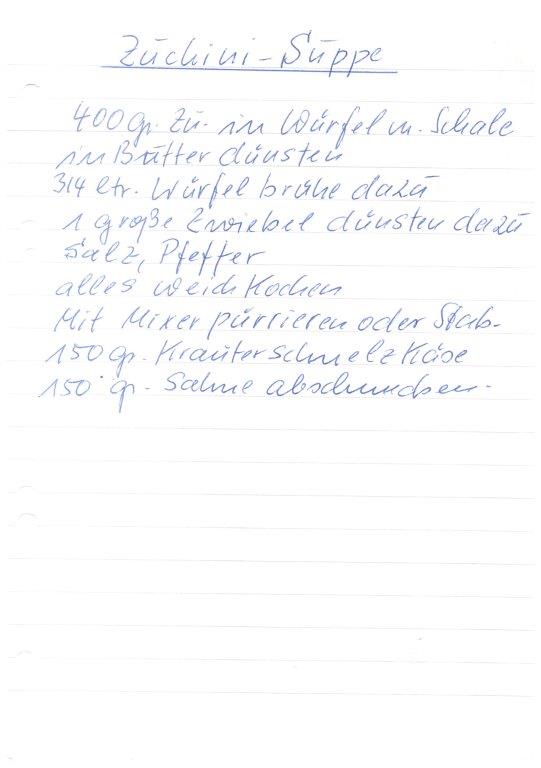 Zuchini-Suppe
400 gr. Zu. in Würfel m. Schale
in Butter dünsten
3/4 ltr. Würfelbrühe dazu
1 große Zwiebel dünsten dazu
Salz, Pfeffer
alles weich Kochen
Mit Mixer pürrieren oder Stab-
150 gr. Kräuterschmelz Käse
150 gr. Sahne abschmecken.